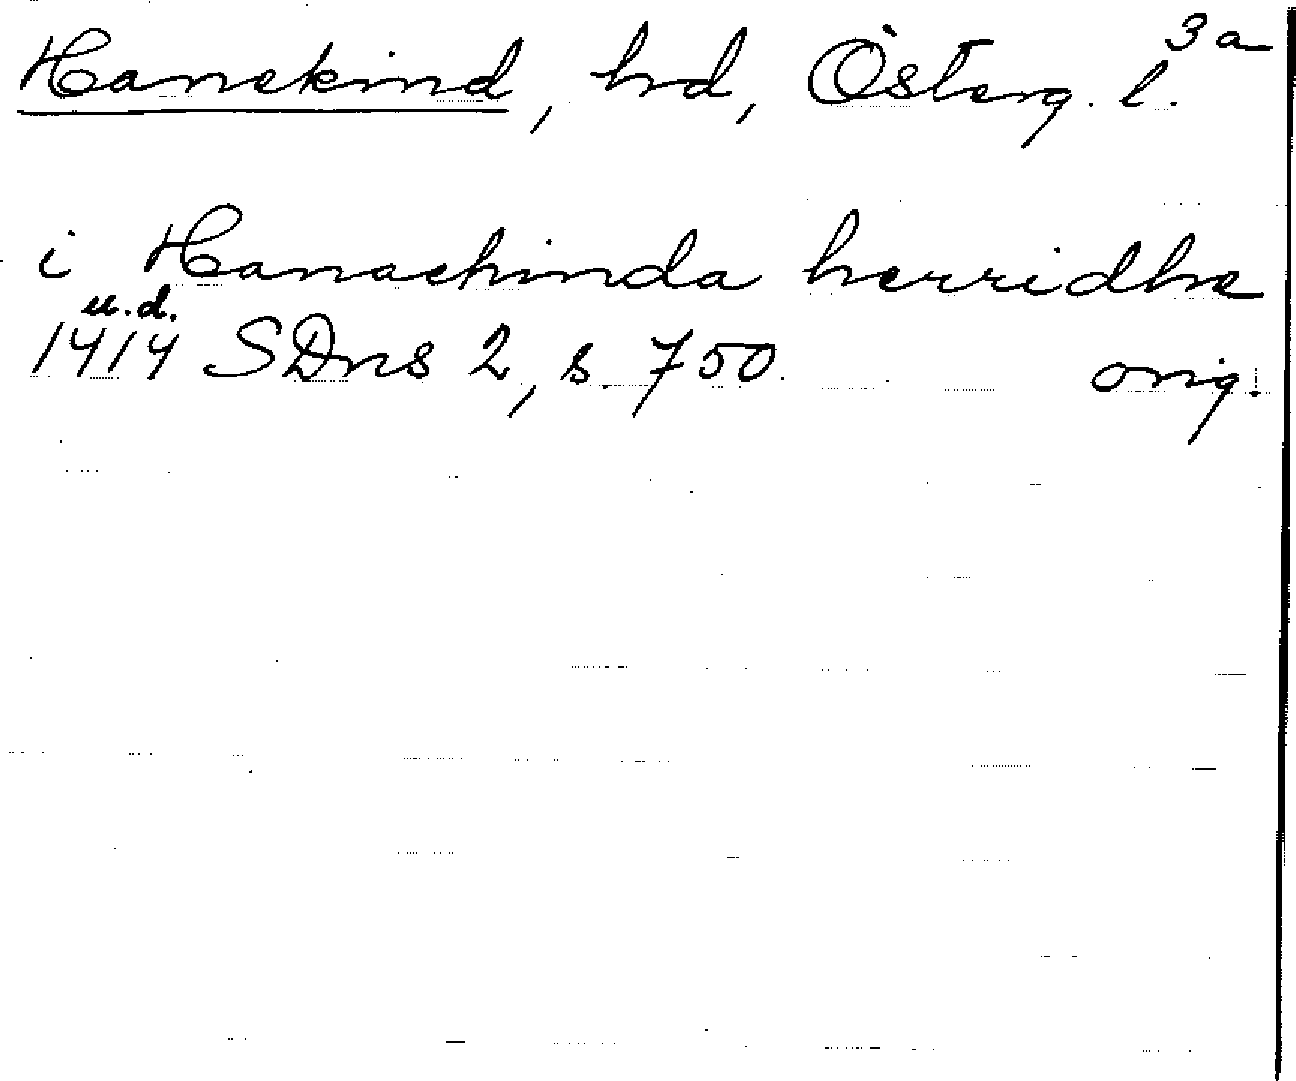 3a
Hanekind, hd, Österg. l.
i Hanachinda herridhe
u.d.
1414 SDns 2, s. 750. orig.